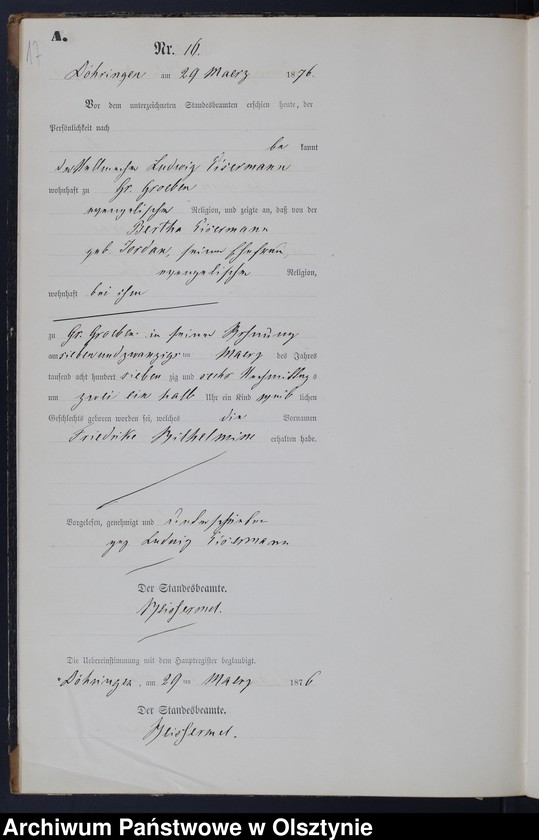 17
A.
Nr. 16.
Döhringen am 29 Maerz 1876.
Vor dem unterzeichneten Standesbeamten erschien heute, der
Persönlichkeit nach
be kannt
der Ludwig Eisermann
wohnhaft zu Gr. Groeben
evangelischer Religion, und zeigte an, daß von der
Bertha Eisermann
geb. Jordan, seiner Ehefrau,
evangelischer Religion,
wohnhaft bei ihm
zu Gr. Groeben in seiner Wohnung
am siebenundzwanzigsten Maerz des Jahres
tausend acht hundert sieben zig und sechs Nachmittags
um zwei ein halb Uhr ein Kind weib lichen
Geschlechts geboren worden sei, welches die Vornamen
Friedrike Wilhelmine erhalten habe.
Vorgelesen, genehmigt und unterschrieben
gez Ludwig Eisermann
Der Standesbeamte.
Die Uebereinstimmung mit dem Hauptregister beglaubigt.
Döhringen, am 29 ten Maerz 1876
Der Standesbeamte.
Archiwum Państwowe w Olsztynie